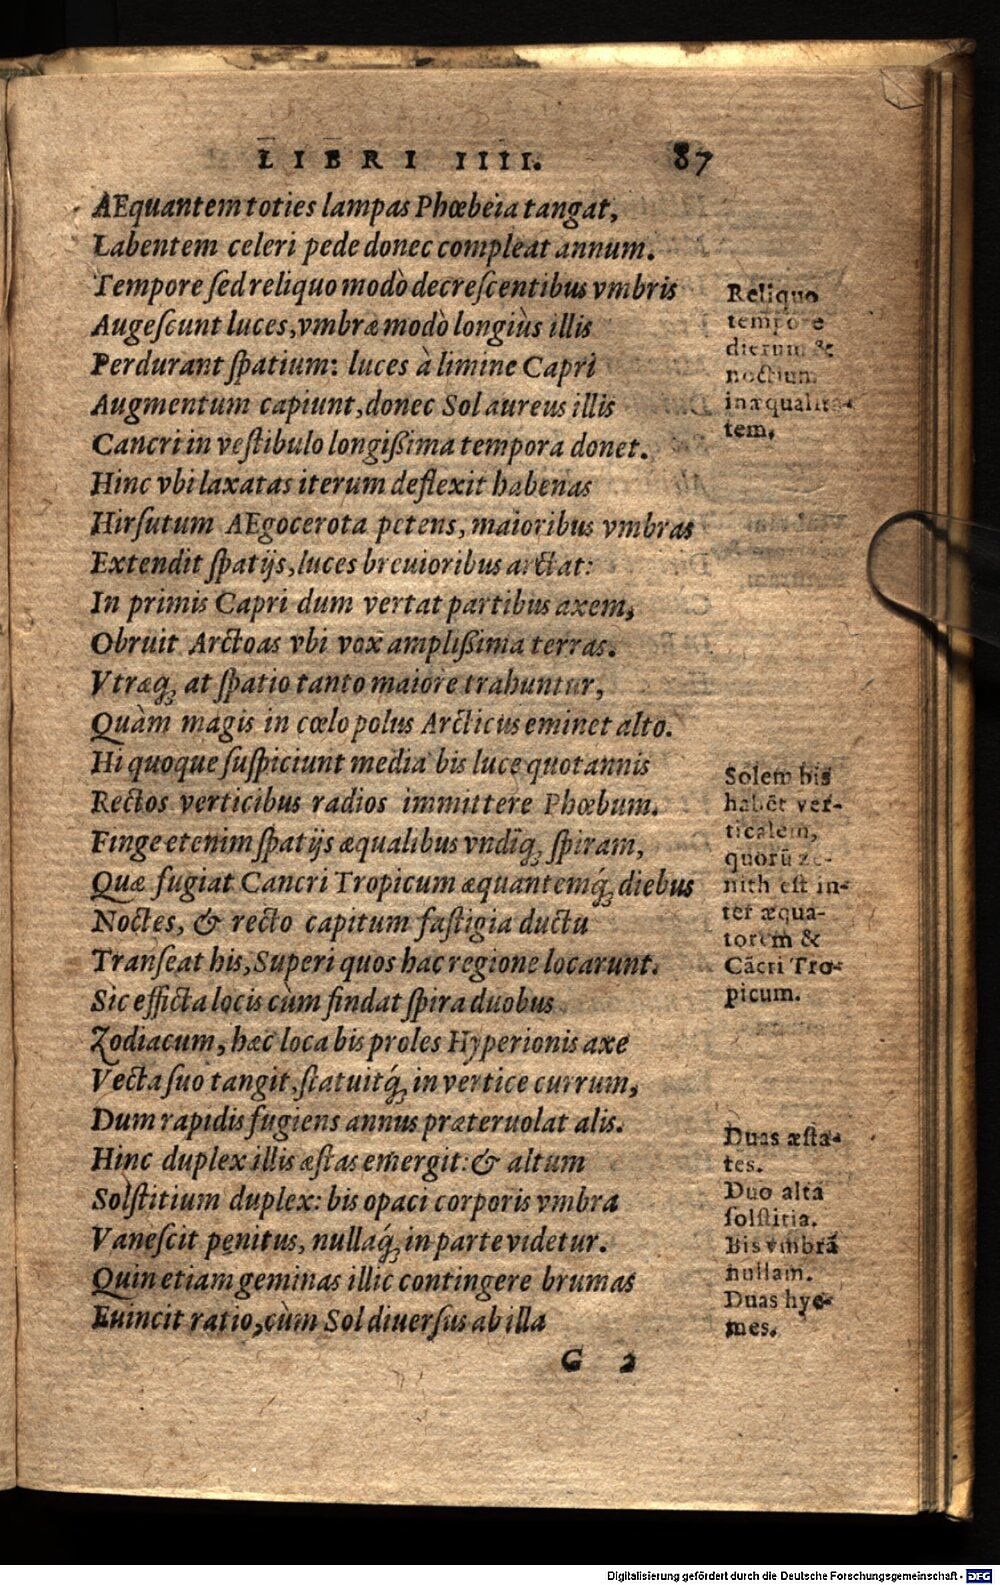 LIBRI IIII. 87
AEquantem toties lampas Phœbeia tangat,
Labentem celeri pede donec compleat annum.
Tempore ſed reliquo modò decreſcentibus vmbris
Augeſcunt luces, vmbræ modò longiùs illis
Perdurant ſpatium: luces à limine Capri
Augmentum capiunt, donec Sol aureus illis
Cancri in veſtibulo longißima tempora donet.
Hinc vbi laxatas iterum deflexit habenas
Hirſutum AEgocerota petens, maioribus vmbras
Extendit ſpatijs, luces breuioribus arctat:
In primis Capri dum vertat partibus axem,
Obruit Arctoas vbi vox amplißima terras.
Vtræq; at ſpatio tanto maiore trahuntur,
Quàm magis in cœlo polus Arcticus eminet alto.
Hi quoque ſuſpiciunt media bis luce quotannis
Rectos verticibus radios immittere Phœbum.
Finge etenim ſpatijs æqualibus vndiq; ſpiram,
Quæ fugiat Cancri Tropicum æquantemq́; diebus
Noctes, & recto capitum faſtigia ductu
Tranſeat his, Superi quos hac regione locarunt.
Sic efficta locis cùm findat ſpira duobus
Zodiacum, hæc loca bis proles Hyperionis axe
Vecta ſuo tangit, ſtatuitq́; in vertice currum,
Dum rapidis fugiens annus præteruolat alis.
Hinc duplex illis æſtas emergit: & altum
Solſtitium duplex: bis opaci corporis vmbra
Vaneſcit penitus, nullaq́; in parte videtur.
Quin etiam geminas illic contingere brumas
Euincit ratio, cùm Sol diuerſus ab illa
G 2
Reliquo
tempore
dierum &
noctium
inæqualita-
tem.
Solem bis
habēt ver-
ticalem,
quorū ze-
nith eſt in-
ter æqua-
torem &
Cācri Tro-
picum.
Duas æſta-
tes.
Duo alta
ſolſtitia.
Bis vmbrā
nullam.
Duas hye-
mes.
Digitalisierung gefördert durch die Deutsche Forschungsgemeinschaft - DFG